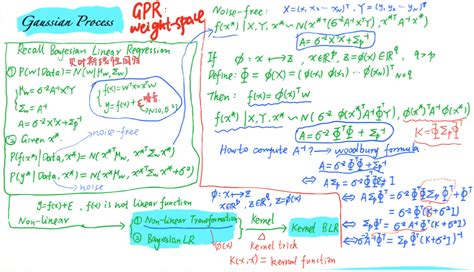 Gaussian Process
GPR:
weight-space
Recall Bayesian Linear Regression
贝叶斯线性回归
① P(w|Data) = N(w|μw, Σw)
μw = σ⁻²A⁻¹XᵀY
Σw = A⁻¹
A = σ⁻²XᵀX + Σp⁻¹
f(x) = wᵀx = xᵀw
y = f(x) + ε
噪音
② Given x*
noise-free
P(f(x*)|Data, x*) = N(x*ᵀμw, x*ᵀΣw x*)
P(y*|Data, x*) = N(x*ᵀμw, x*ᵀΣw x* + σ²)
noise
y = f(x) + ε, f(x) is not linear function
Non-linear
① Non-linear Transformation
② Bayesian LR
φ: x ↦ z
x∈ℝᵖ, z∈ℝq
φ(x)
kernel
Kernel BLR
kernel trick
K(x, x') = kernel function
Noise-free: X = (x₁ x₂ ⋯ xN)ᵀ, Y = (y₁ ⋯ yN)ᵀ
f(x*) | X, Y, x* ~ N(x*ᵀ(σ⁻²A⁻¹XᵀY), x*ᵀA⁻¹x*)
A = σ⁻²XᵀX + Σp⁻¹
If φ: x ↦ z, x∈ℝᵖ, z = φ(x)∈ℝq, q > p
Define: Φ = (φ(x₁) φ(x₂) ⋯ φ(xN))ᵀ N×q
Then: f(x) = φ(x)ᵀw
f(x*) | X, Y, x* ~ N(σ⁻² φ(x*)ᵀA⁻¹ΦᵀY, φ(x*)ᵀA⁻¹φ(x*))
A = σ⁻²ΦᵀΦ + Σp⁻¹
K = ΦΣpΦᵀ
How to compute A⁻¹? → woodbury formula
A = σ⁻²ΦᵀΦ + Σp⁻¹
⇔ AΣp = σ⁻²ΦᵀΦΣp + I
⇔ AΣpΦᵀ = σ⁻²ΦᵀΦΣpΦᵀ + Φᵀ
= σ⁻²Φᵀ(K + σ²I)
⇔ ΣpΦᵀ = σ⁻²A⁻¹Φᵀ(K + σ²I)
⇔ σ⁻²A⁻¹Φᵀ = ΣpΦᵀ(K + σ²I)⁻¹